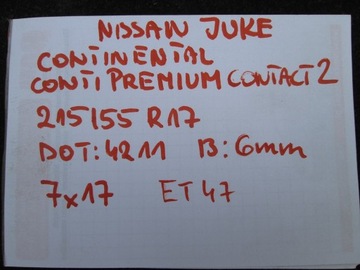 NISSAN JUKE
CONTINENTAL
CONTI PREMIUM CONTACT 2
215/55 R17
DOT: 4211 B: 6mm
7x17 ET 47